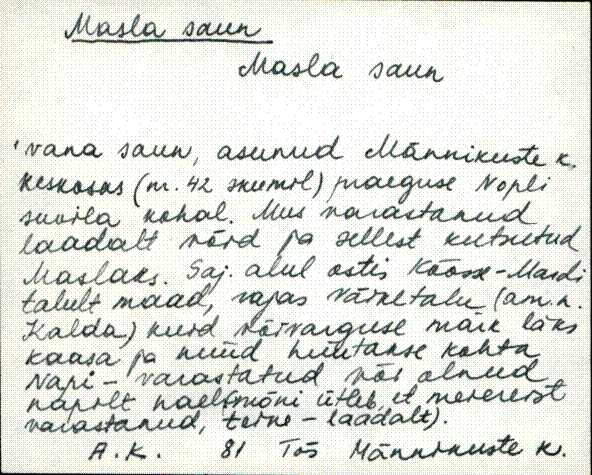 Masla saun
Masla saun
'vana saun, asunud Männikuste k.
keskosas (nr. 42 skeemil) praeguse Nopli
suvila kohal. Mus varastanud
laadalt võid ja sellest kutsutud
Maslaks. Saj. alul ostis Kõosse-Mardi
talult maad, rajas väiketalu (am. n.
Kalda) kuid võivarguse maik läks
kaasa ja nüüd hüütakse kohta
Napi - varastatud või olnud
napilt naelt(mõni ütleb, et merereist
varastanud, teine - laadalt).
A.K. 81 Tõs Männikuste k.